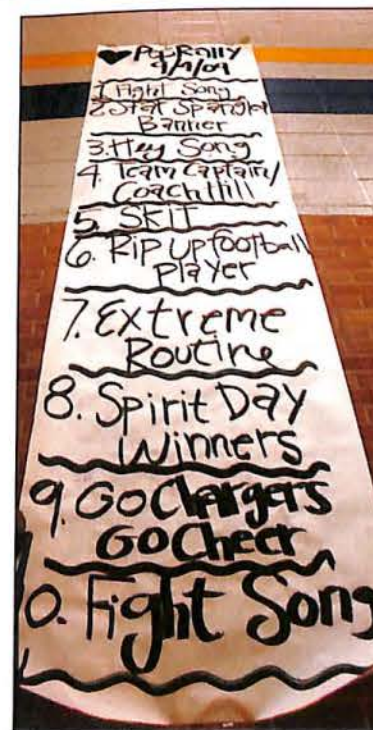 ♥ Pep Rally
9/4/09
1. Fight Song
2. Star Spangled
Banner
3. Hey Song
4. Team Captain/
Coach Hill
5. SKIT
6. Rip up football
player
7. Extreme
Routine
8. Spirit Day
Winners
9. Go Chargers
Go Cheer
0. Fight Song